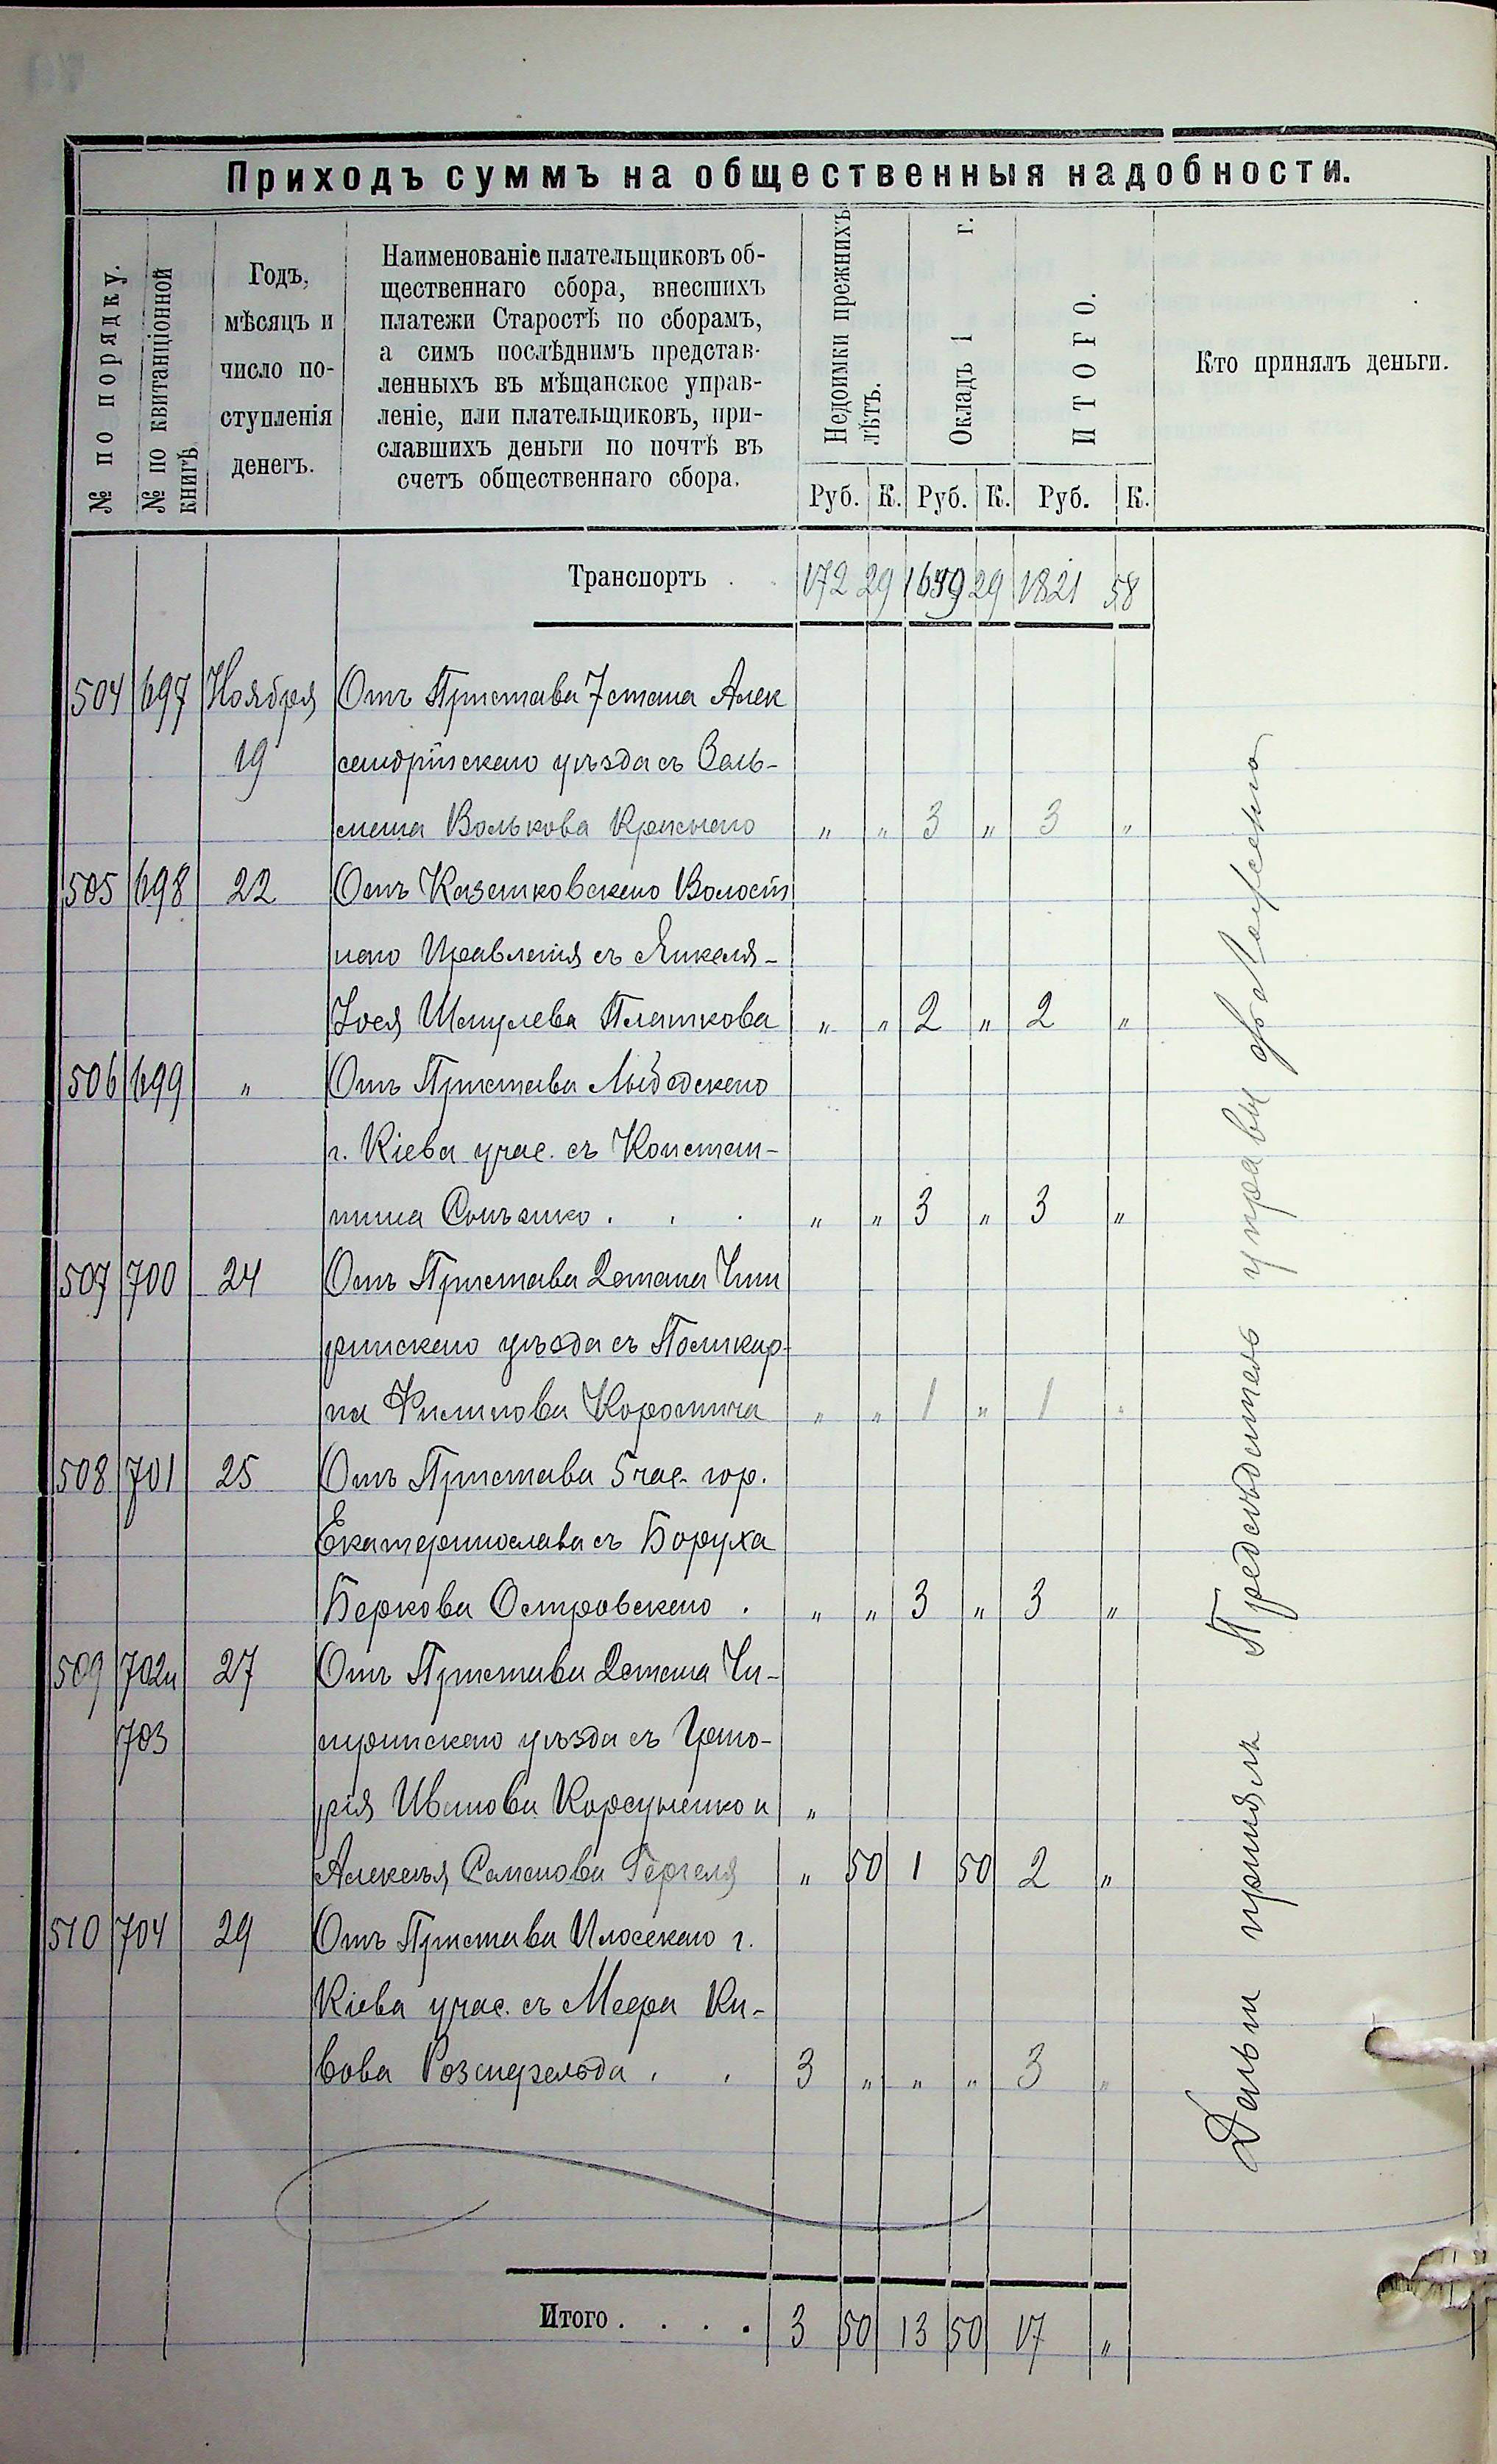 Приходъ суммъ на общественныя надобности.
№ по порядку.
№ по квитанціонной
книгѣ
Годъ,
мѣсяцъ и
число по-
ступленія
денегъ.
Наименованіе плательщиковъ об-
щественнаго сбора, внесшихъ
платежи Старостѣ по сборамъ,
а симъ послѣднимъ представ-
ленныхъ въ мѣщанское управ-
леніе, или плательщиковъ, при-
славшихъ деньги по почтѣ въ
счетъ общественнаго сбора.
Недоимки прежнихъ
лѣтъ.
Окладъ 1 г.
ИТОГО.
Кто принялъ деньги.
Руб. К. Руб. К. Руб. К.
Транспортъ . . 172 29 1649 29 1821 58
504 697 Ноября Отъ Пристава 7 стана Алек
19 сандрійскаго уѣзда съ Заль-
мана Волькова Краснаго " " 3 " 3 "
505 698 22 Отъ Казатковскаго Волост
наго Правленія съ Янкеля-
Іося Шмулева Платкова " " 2 " 2 "
506 699 " Отъ Пристава Лыбедскаго
г. Кіева учас. съ Констан-
тина . . . " " 3 " 3 "
507 700 24 Отъ Пристава 2 стана Чиги
ринскаго уѣзда съ Поликар-
па Филипова " " 1 " 1 "
508 701 25 Отъ Пристава 5 час. гор.
Екатеринослава съ Боруха
Беркова Островскаго . " " 3 " 3 "
509 702 и 27 Отъ Пристава 2 стана Чи-
703 гиринскаго уѣзда съ Григо-
рія Иванова Корсуненко и "
Алексѣя Семенова Гергеля " 50 1 50 2 "
510 704 29 Отъ Пристава Плосскаго г.
Кіева учас. съ Меера Ки-
вова Розенфельда . . 3 " " " 3 "
Итого . . . . 3 50 13 50 17 "
Деньги принялъ Предсѣдатель управы